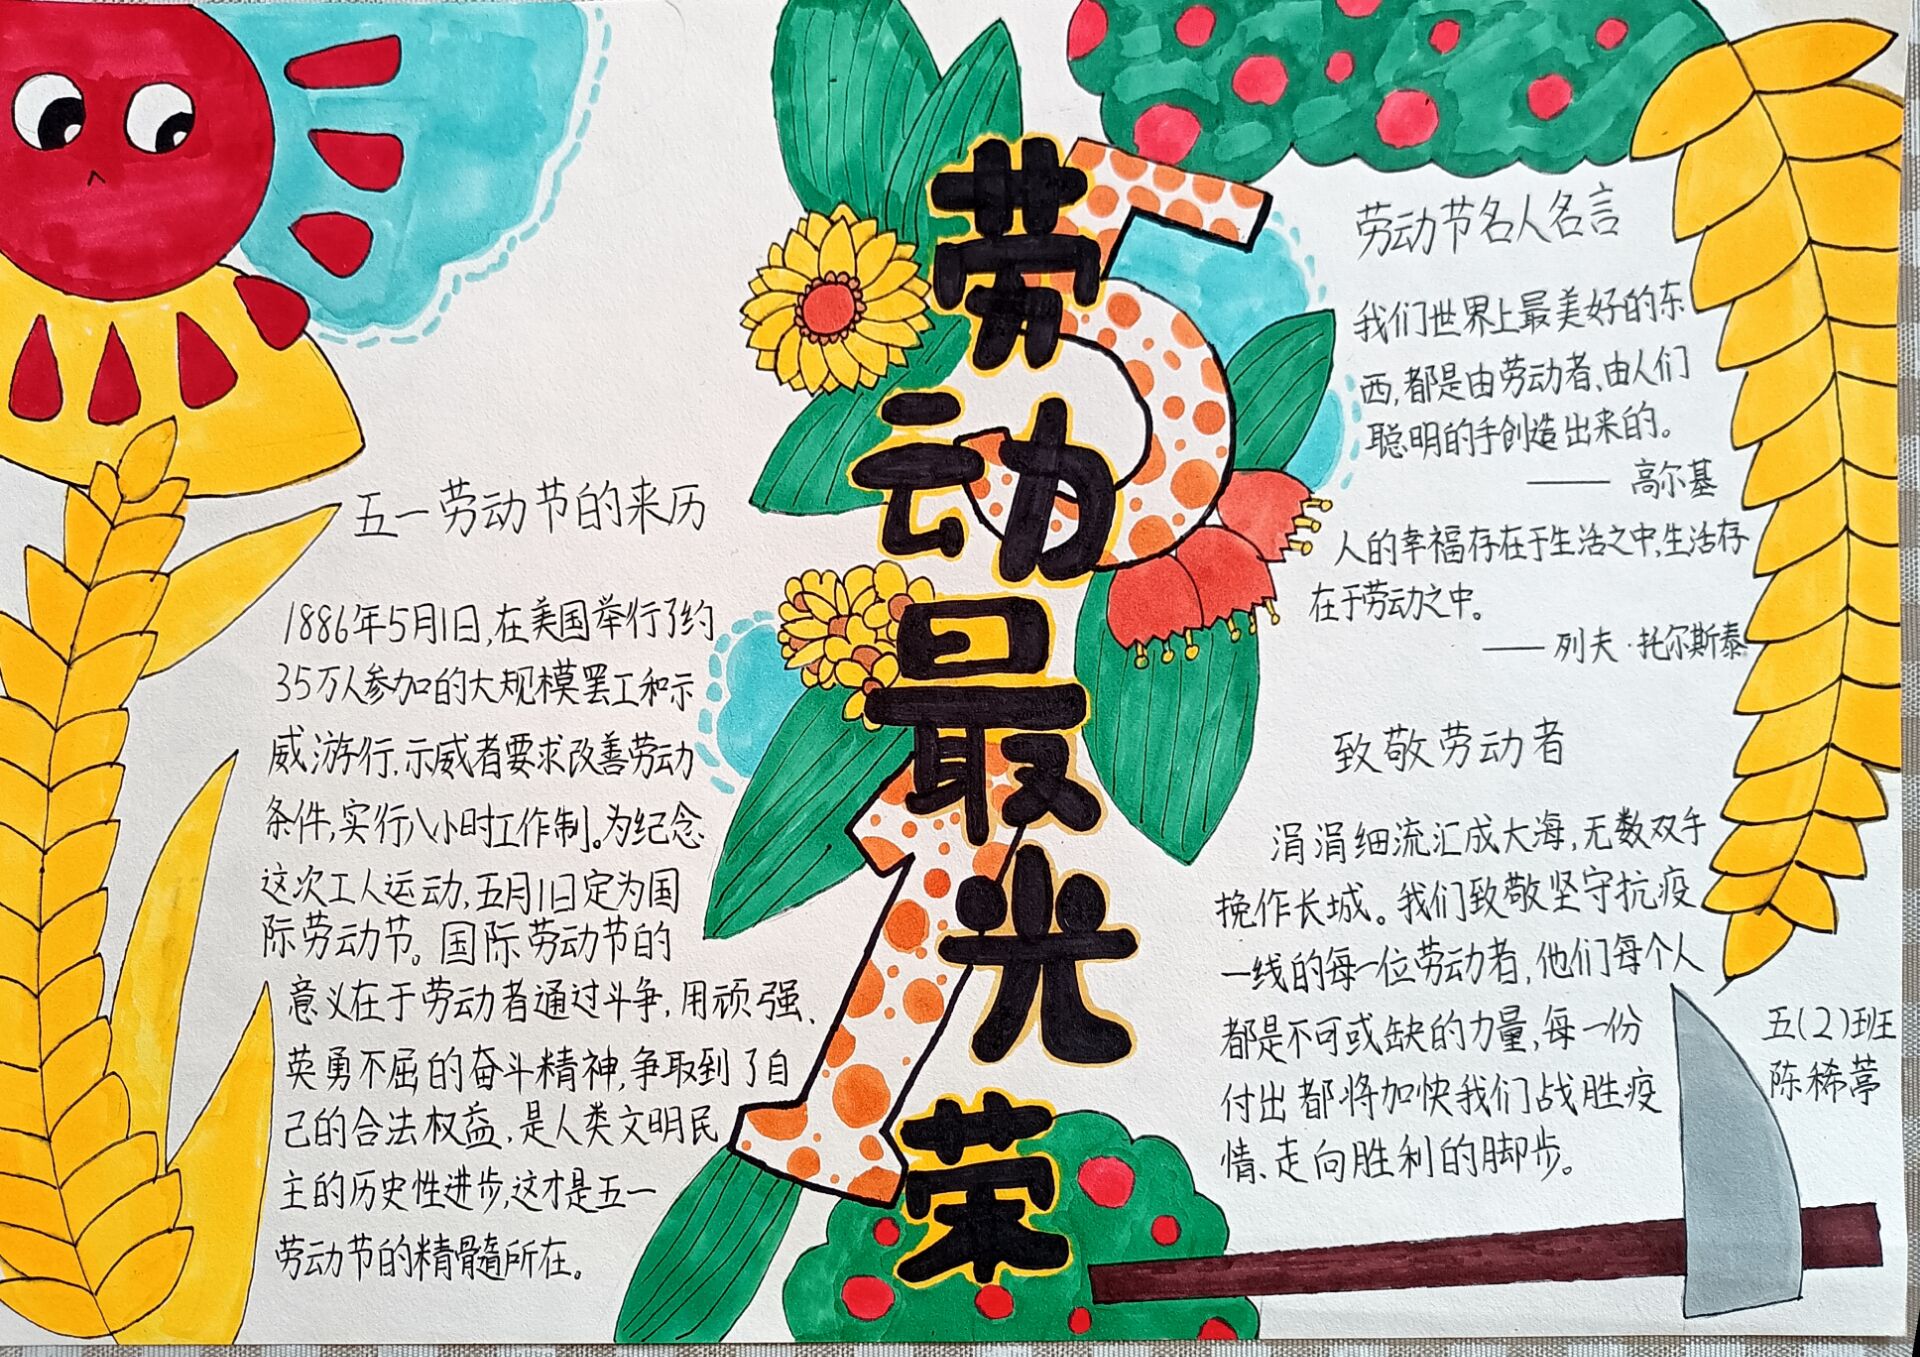 五一劳动节的来历
1886年5月1日,在美国举行了约
35万人参加的大规模罢工和示
威游行,示威者要求改善劳动
条件,实行八小时工作制。为纪念
这次工人运动,五月1日定为国
际劳动节。国际劳动节的
意义在于劳动者通过斗争,用顽强、
英勇不屈的奋斗精神,争取到了自
己的合法权益,是人类文明民
主的历史性进步,这才是五一
劳动节的精髓所在。
5
1
劳
动
最
光
荣
劳动节名人名言
我们世界上最美好的东
西,都是由劳动者、由人们
聪明的手创造出来的。
—— 高尔基
人的幸福存在于生活之中,生活存
在于劳动之中。
—— 列夫·托尔斯泰
致敬劳动者
涓涓细流汇成大海,无数双手
挽作长城。我们致敬坚守抗疫
一线的每一位劳动者,他们每个人
都是不可或缺的力量,每一份
付出都将加快我们战胜疫
情、走向胜利的脚步。
五(2)班
陈稀葶